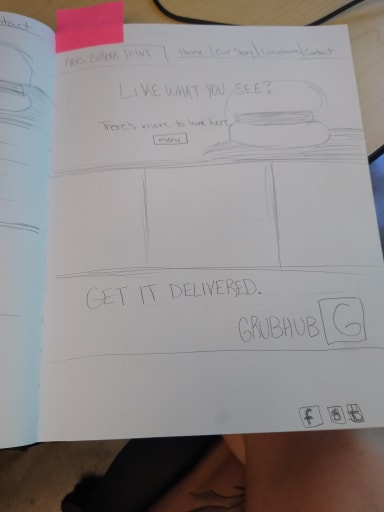 JOINT / Home / Our Story / Locations / Contact
LIKE WHAT YOU SEE?
There's more to love here
menu
GET IT DELIVERED.
GRUBHUB G
f t